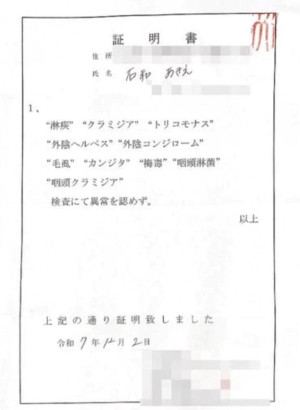 証明書
住所
氏名 石和 あきえ
1、
“淋疾” “クラミジア” “トリコモナス”
“外陰ヘルペス” “外陰コンジローム”
“毛虱” “カンジタ” “梅毒” “咽頭淋菌”
“咽頭クラミジア”
検査にて異常を認めず。
以上
上記の通り証明致しました
令和 7年 12月 2日